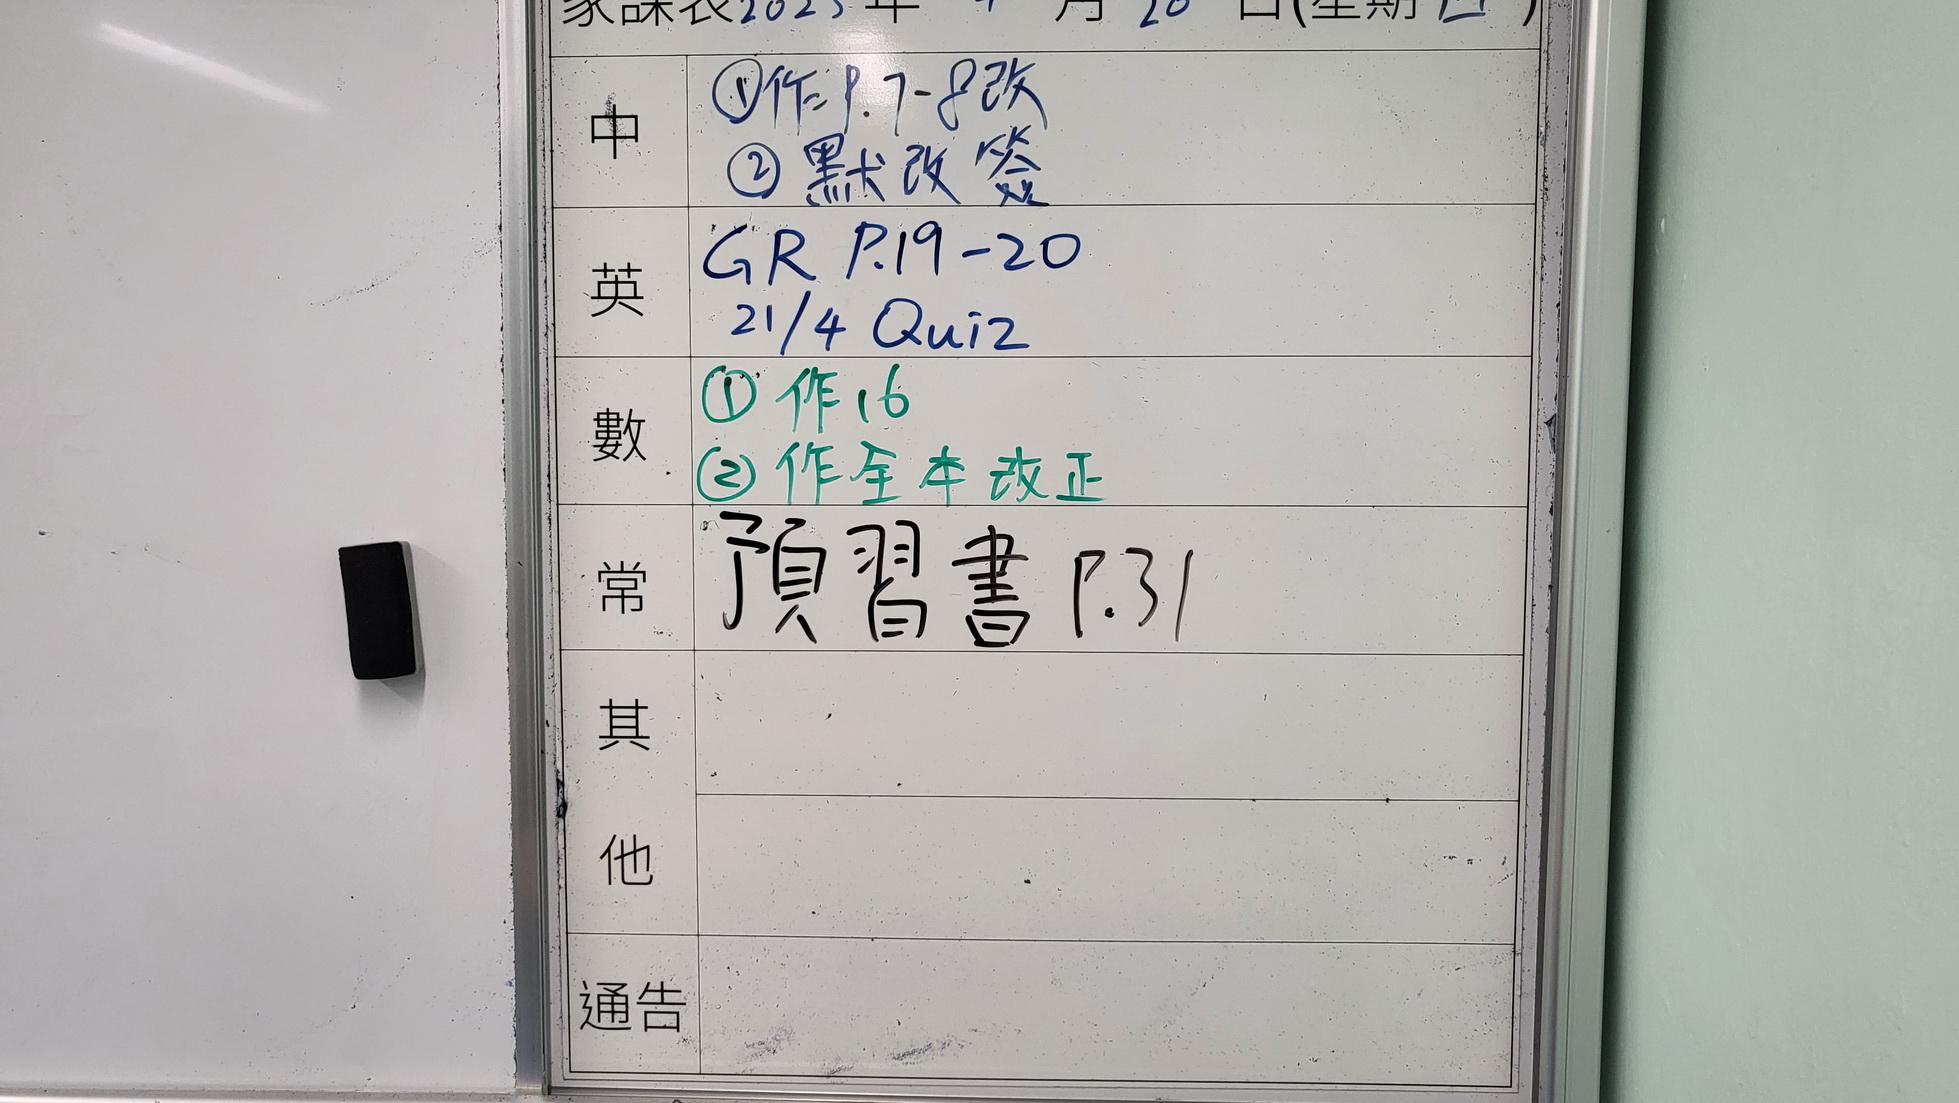 家課表2023年 4月20日(星期四)
中
①作=P.7-8改
②默改簽
英
GR P.19-20
21/4 Quiz
數
①作16
②作全本改正
常
預習書P.31
其他
通告